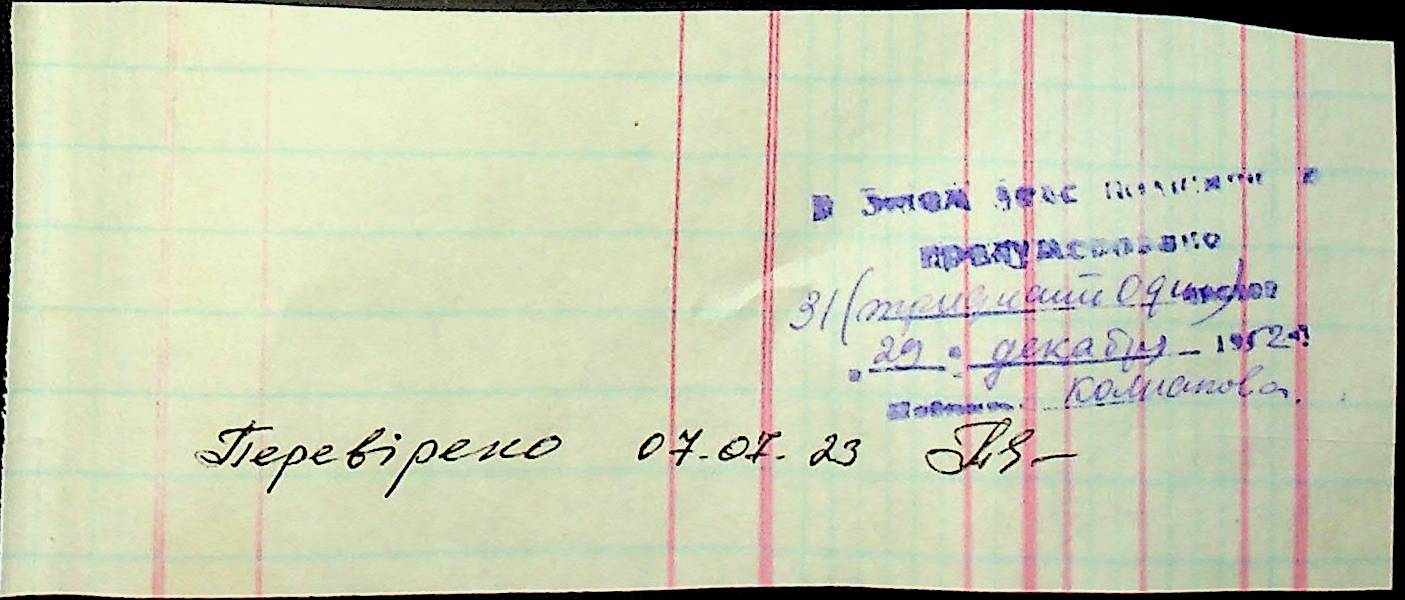 В этом деле
пронумеровано
31 (тридцать один) листов
"29" декабря 1952 г.
Подпись
Перевірено 07.07.23